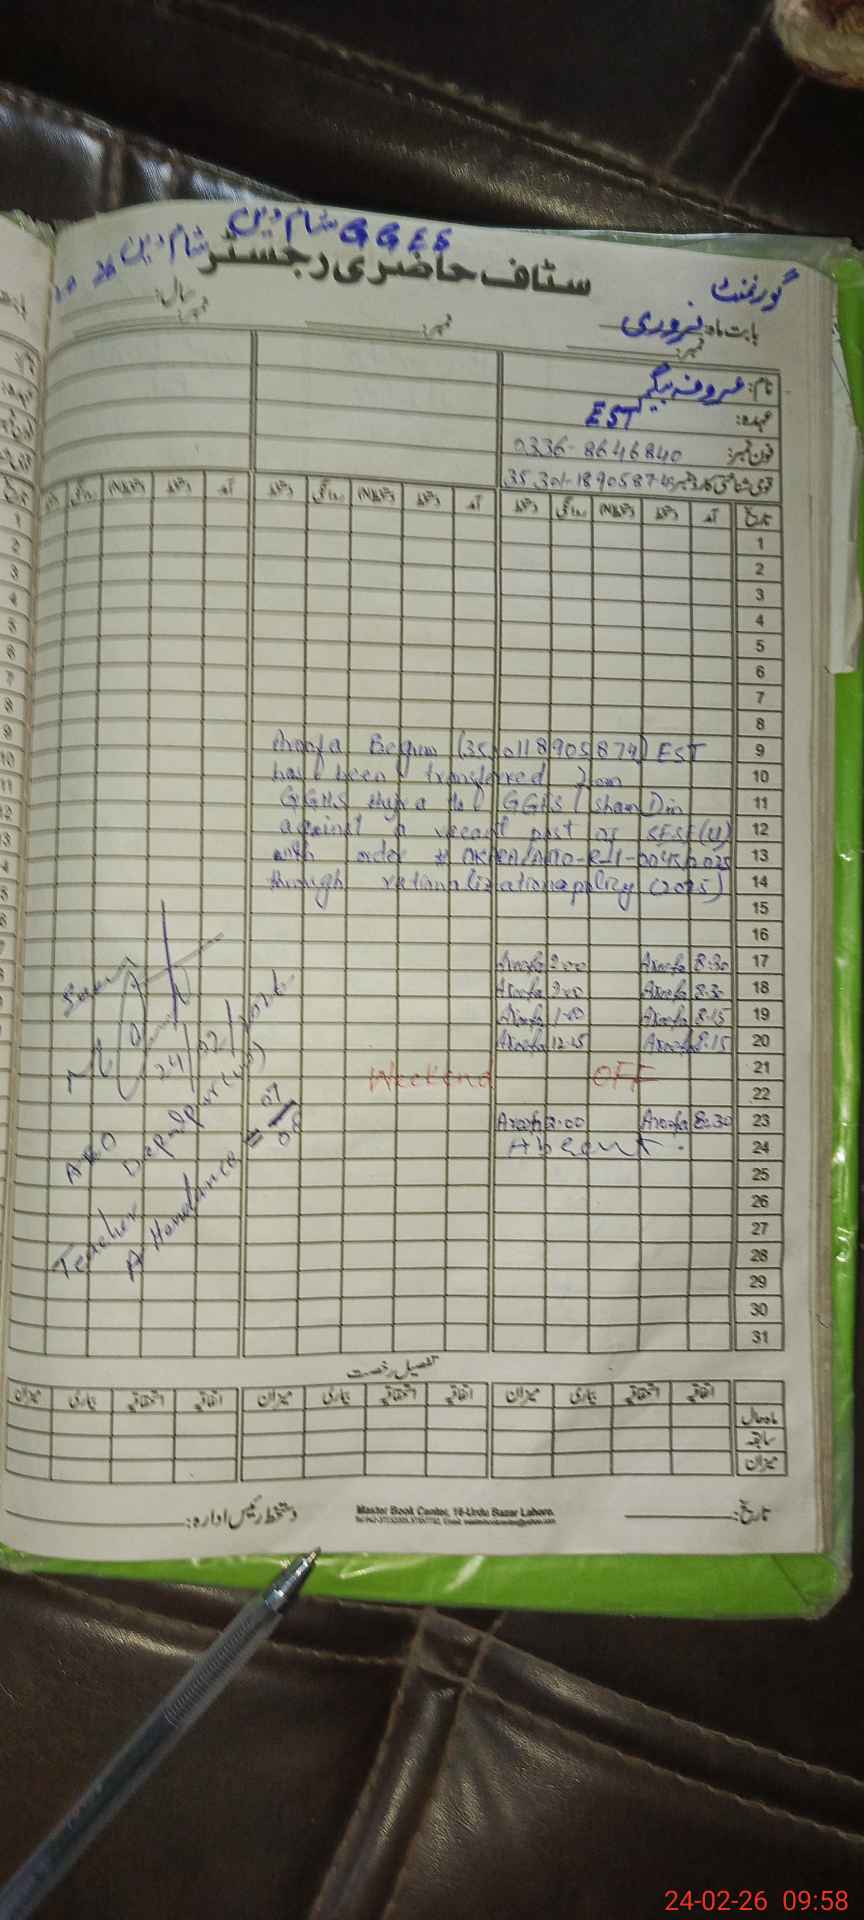 GGES شام دین
سٹاف حاضری رجسٹر شام دین
گورنمنٹ
بابت ماہ: فروری
سال: 26
نمبر:
نمبر:
نمبر:
نام: عروفہ بیگم
عہدہ: EST
فون نمبر: 0336-8646840
قومی شناختی کارڈ نمبر:
تاریخ آمد دستخط دستخط(N) روانگی دستخط آمد دستخط دستخط(N) روانگی دستخط آمد دستخط دستخط(N) روانگی
1
2
3
4
5
6
7
8
9 Aroofa Begum EST
10 has been transferred from
11 GGHS Hujra to GGES Sham Din
12 against a vecant post of SESE(U)
13 with order #
14 through rationalization policy (2025)
15
16
17 8:30 Aroofa 2:00 Aroofa
18 8:30 Aroofa 2:00 Aroofa
19 8:15 Aroofa 1:00 Aroofa
20 8:15 Aroofa 12:15 Aroofa
21 Weekend OFF
22
23 8:30 Aroofa 2:00 Aroofa
24 Absent.
25
26
27
28
29
30
31
24/02/2026
AEO Depalpur
Teacher
Attendance = 07/08
تفصیل رخصت
اتفاقیہ استحقاقیہ بیماری میزان اتفاقیہ استحقاقیہ بیماری میزان اتفاقیہ استحقاقیہ بیماری میزان
ماہ حال
سابقہ
میزان
تاریخ:
Master Book Center, 18-Urdu Bazar Lahore.
دستخط رئیس ادارہ:
24-02-26 09:58